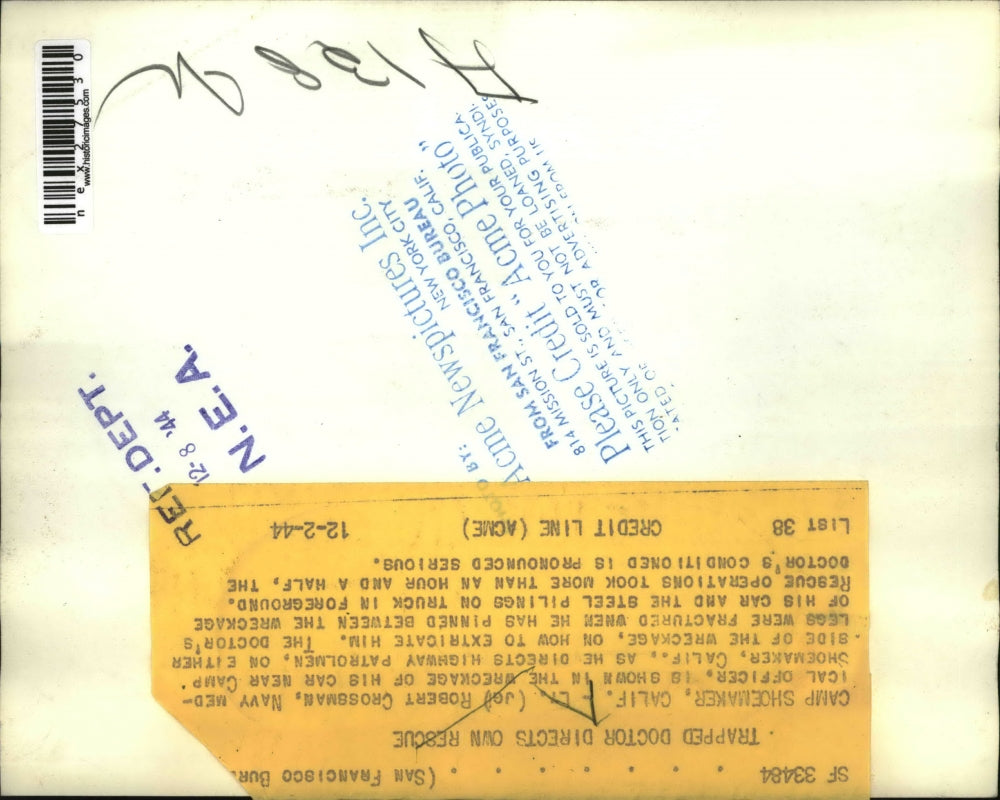 H 138 N
nex27530
www.historicimages.com
REF. DEPT.
12-8 '44
N.E.A.
BY:
Acme Newspictures Inc.
NEW YORK CITY
FROM SAN FRANCISCO BUREAU
814 MISSION ST., SAN FRANCISCO, CALIF.
Please Credit "Acme Photo"
THIS PICTURE IS SOLD TO YOU FOR YOUR PUBLICA-
TION ONLY AND MUST NOT BE LOANED, SYNDI-
CATED OR FOR ADVERTISING PURPOSES
SF 33484 . . . . . . . (SAN FRANCISCO
. TRAPPED DOCTOR DIRECTS OWN RESCUE
CAMP SHOEMAKER, CALIF. - LT. (JG) ROBERT GROSSMAN, NAVY MED-
ICAL OFFICER, IS SHOWN IN THE WRECKAGE OF HIS CAR NEAR CAMP
SHOEMAKER, CALIF., AS HE DIRECTS HIGHWAY PATROLMEN, ON EITHER
SIDE OF THE WRECKAGE, ON HOW TO EXTRICATE HIM. THE DOCTOR'S
LEGS WERE FRACTURED WHEN HE HAS PINNED BETWEEN THE WRECKAGE
OF HIS CAR AND THE STEEL PILINGS ON TRUCK IN FOREGROUND.
RESCUE OPERATIONS TOOK MORE THAN AN HOUR AND A HALF, THE
DOCTOR'S CONDITIONED IS PRONOUNCED SERIOUS.
LIST 38 CREDIT LINE (ACME) 12-2-44